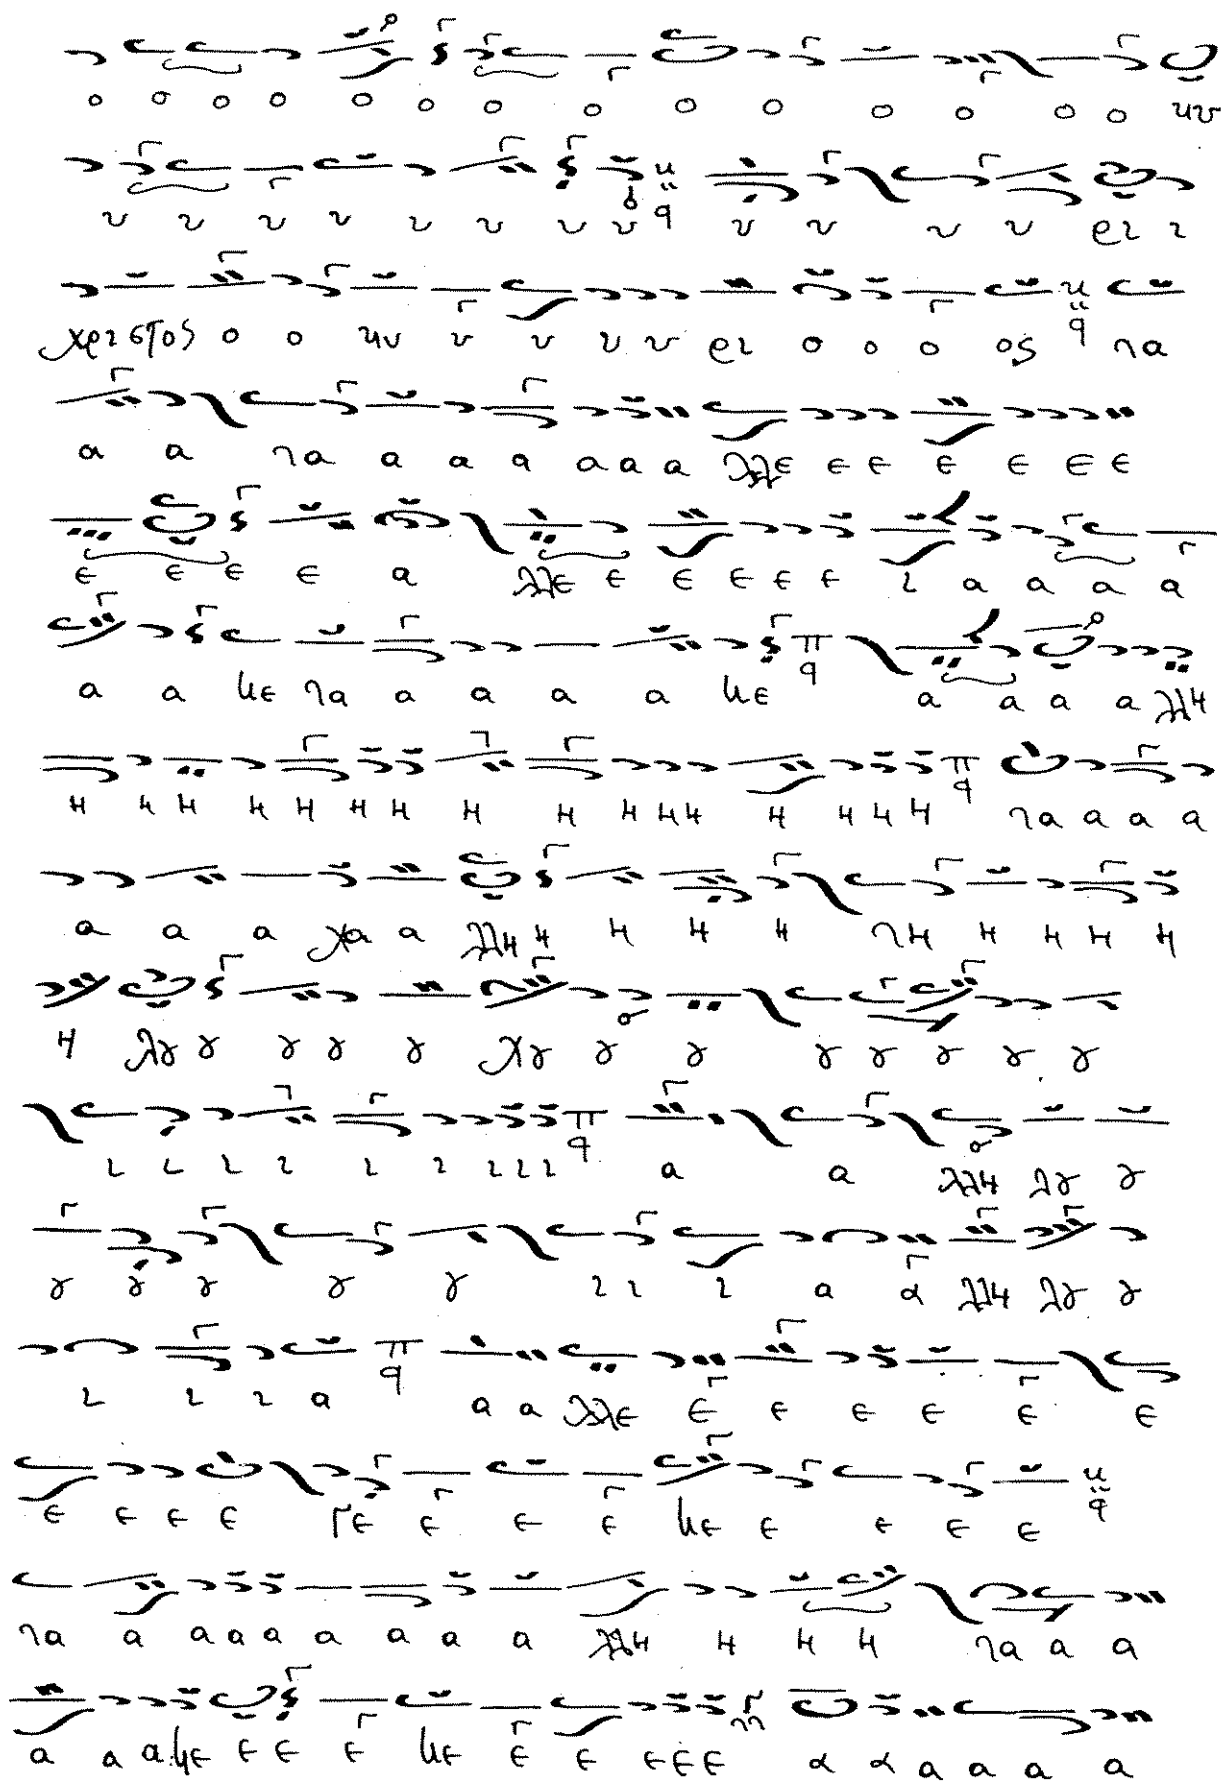 ο ο ο ο ο ο ο ο ο ο ο ο ο ο κυ
υ υ υ υ υ υ υ υ υ υ υ υ ρι ι
χριστος ο ο κυ υ υ υ υ ρι ο ο ο ος να
α α να α α α α α α λλε ε ε ε ε ε ε
ε ε ε ε α λλε ε ε ε ε ε ι α α α α
α α κε να α α α α κε α α α α λλη
η η η η η η η η η η η η η η η η να α α α
α α α χα α λλη η η η η νη η η η η
η λȣ ȣ ȣ ȣ ȣ χȣ ȣ ȣ ȣ ȣ ȣ ȣ ȣ
ι ι ι ι ι ι ι ι ι α α λλη λȣ ȣ
ȣ ȣ ȣ ȣ ȣ ι ι ι α α λλη λȣ ȣ
ι ι ι α α α λλε ε ε ε ε ε ε
ε ε ε ε γε ε ε ε κε ε ε ε ε
να α α α α α α α α λλη η η η να α α
α α α κε ε ε ε κε ε ε ε ε ε α α α α α α